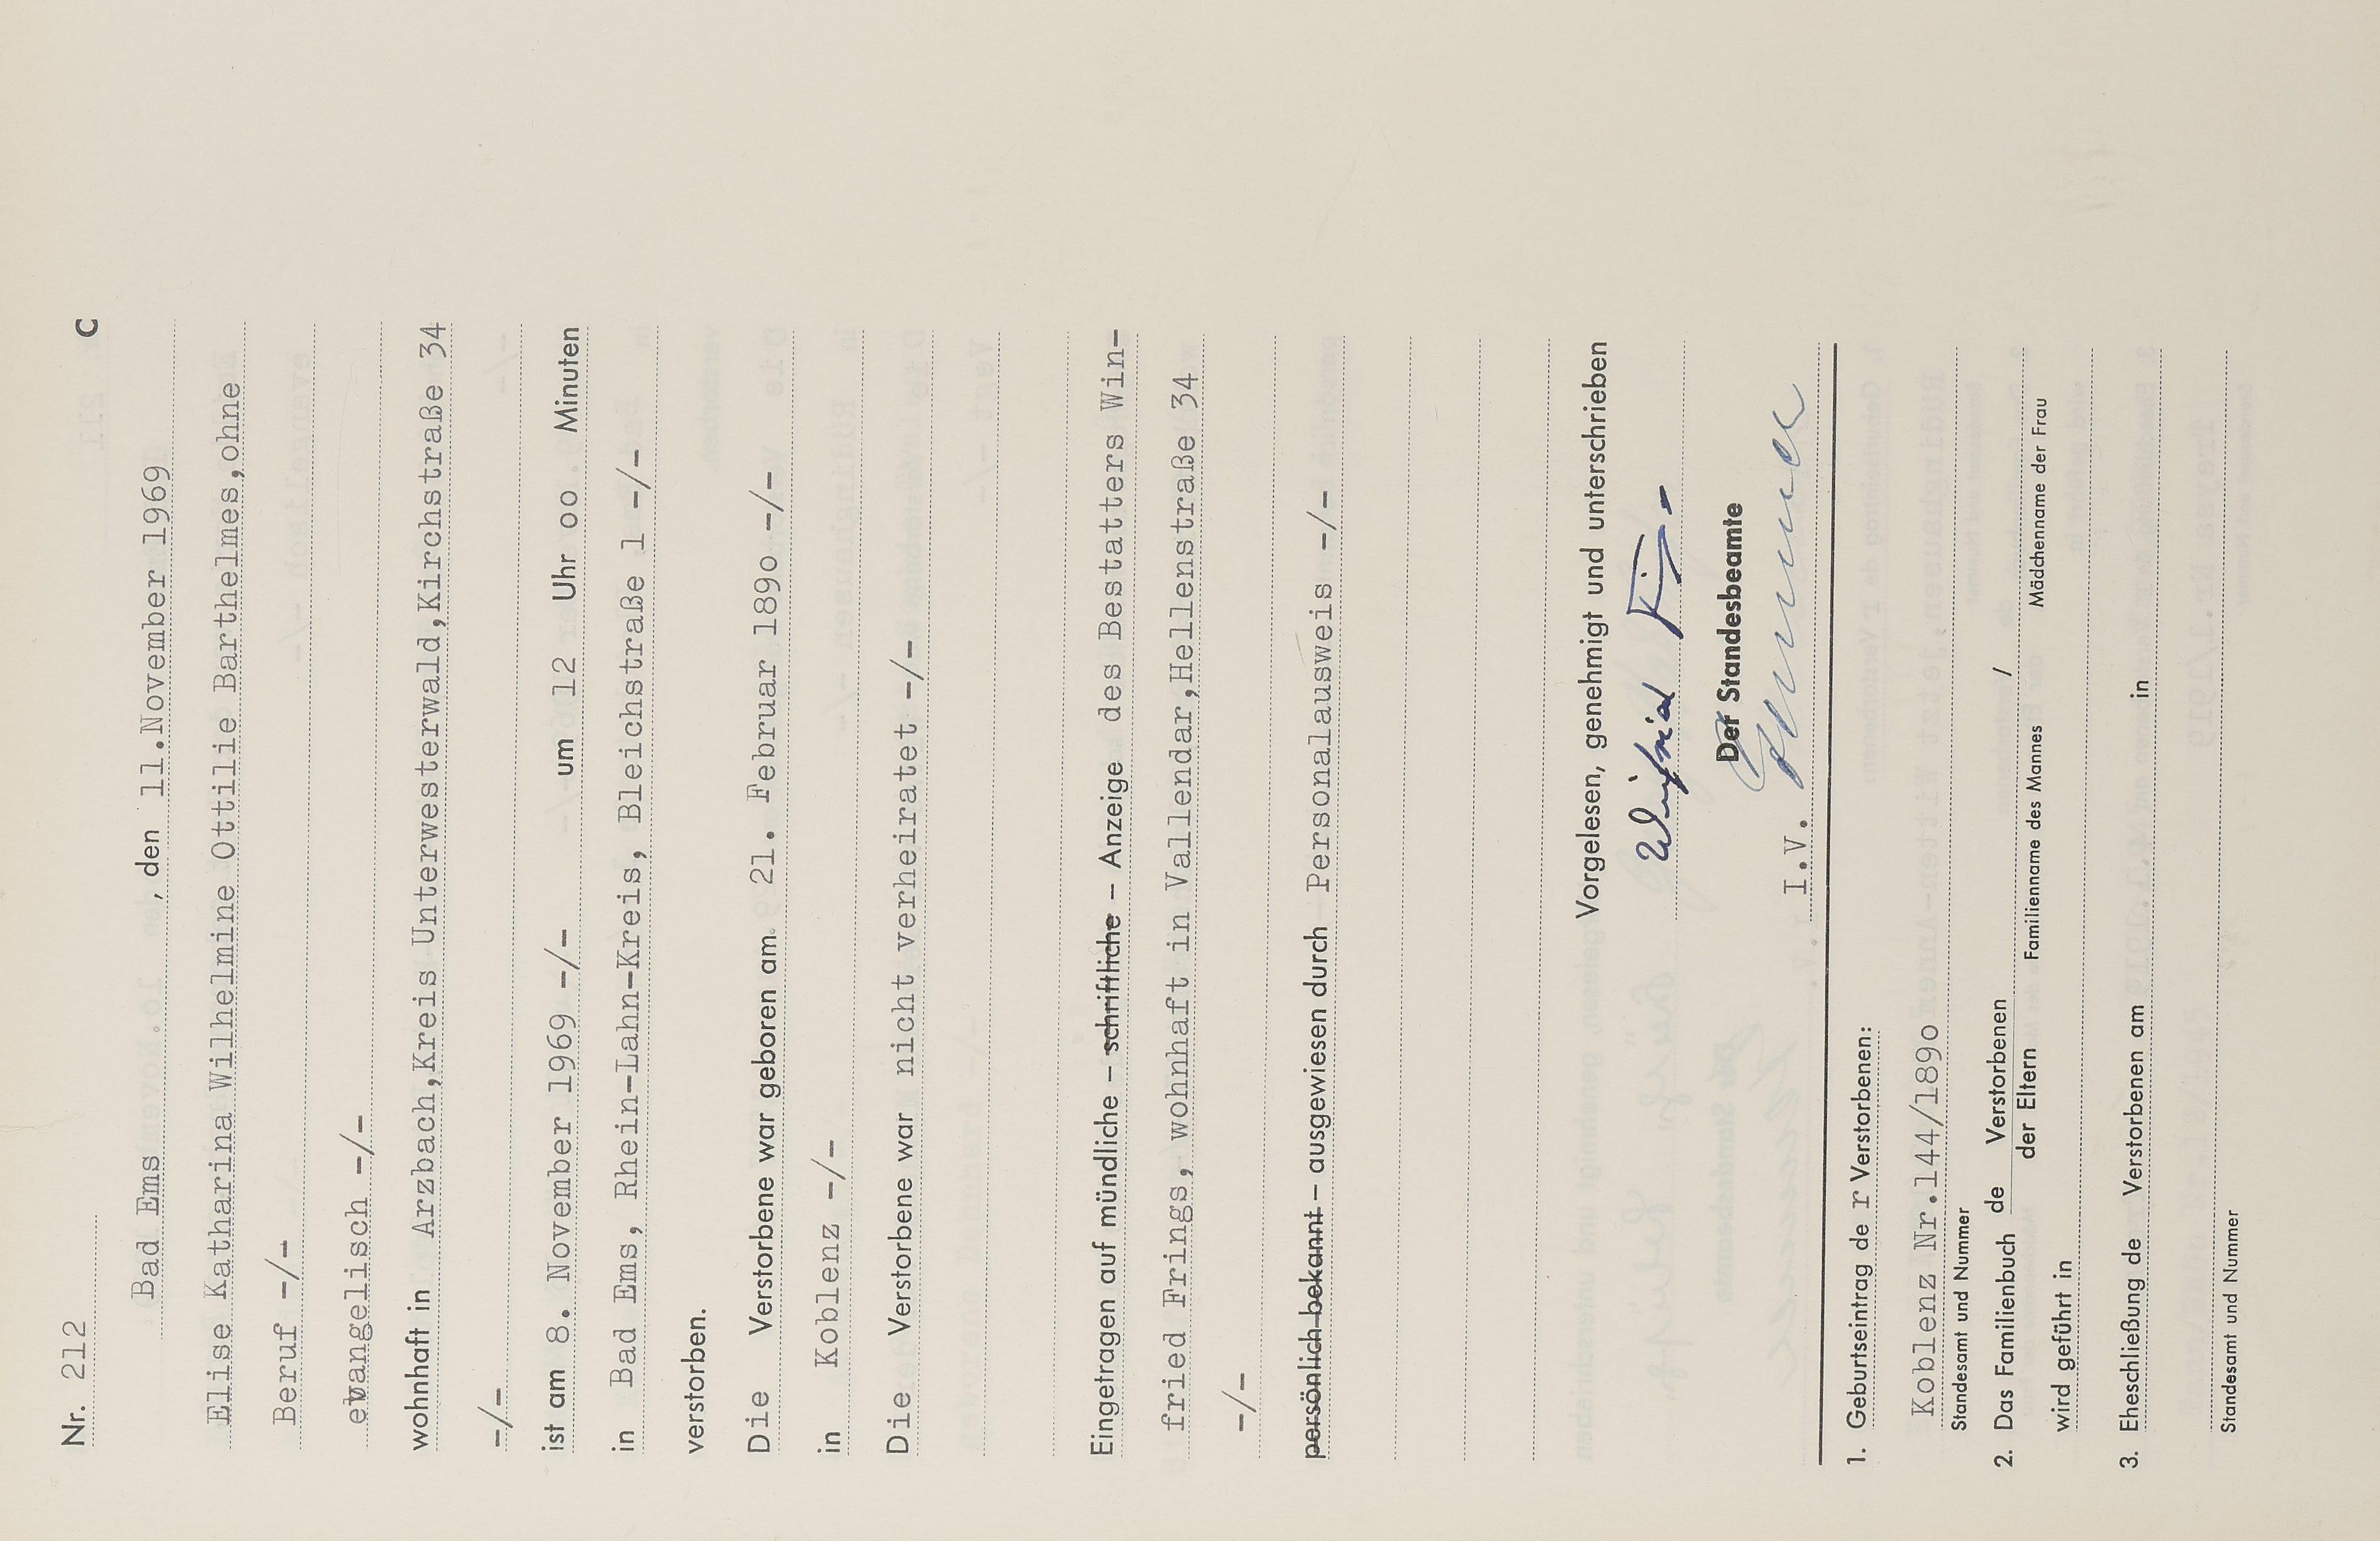 Nr. 212 C
Bad Ems, den 11.November 1969
Elise Katharina Wilhelmine Ottilie Barthelmes,ohne
Beruf -/-
evangelisch -/-
wohnhaft in Arzbach,Kreis Unterwesterwald,Kirchstraße 34
-/-
ist am 8. November 1969 -/- um 12 Uhr oo Minuten
in Bad Ems, Rhein-Lahn-Kreis, Bleichstraße 1 -/-
verstorben.
Die Verstorbene war geboren am 21. Februar 189o -/-
in Koblenz -/-
Die Verstorbene war nicht verheiratet -/-
Eingetragen auf mündliche – schriftliche – Anzeige des Bestatters Win-
fried Frings, wohnhaft in Vallendar,Hellenstraße 34
-/-
persönlich bekannt – ausgewiesen durch Personalausweis -/-
Vorgelesen, genehmigt und unterschrieben
Winfried
Der Standesbeamte
I.V.
1. Geburtseintrag de r Verstorbenen:
Koblenz Nr.144/189o
Standesamt und Nummer
2. Das Familienbuch de Verstorbenen /
der Eltern Familienname des Mannes Mädchenname der Frau
wird geführt in
3. Eheschließung de Verstorbenen am in
Standesamt und Nummer